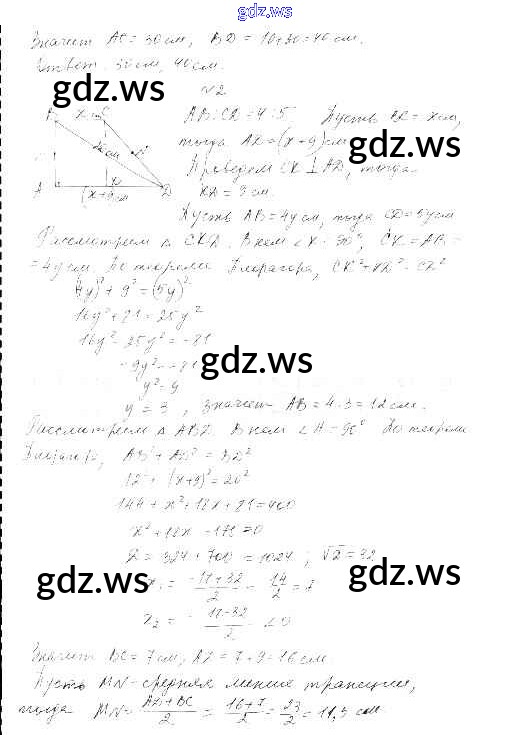 gdz.ws
Значит AC = 30 см, BD = 10+30=40 см.
Ответ: 30 см, 40 см.
gdz.ws
N2
AB:CD=4:5. Пусть BC = x см,
тогда AD=(x+9)см
gdz.ws
Проведем CK ⊥ AD, тогда
KD = 9 см.
A
D
(x+9)см
Пусть AB=4y см, тогда CD=5y см
Рассмотрим △ CKD. В нем
= 4y см. По теореме Пифагора, CK²+KD²=CD²
(4y)²+9²=(5y)²
16y²+81=25y²
16y²-25y²=-81
-9y²=-81
gdz.ws
y²=9
y=3, значит AB=4·3=12 см.
Рассмотрим △ ABD. В нем ∠A=90° По теореме
Пифагора, AB²+AD²=BD²
12²+(x+9)²=20²
144+x²+18x+81=400
x²+18x-175=0
=324+700=1024; =32
gdz.ws
gdz.ws
=14/2=7
x₂= <0
Значит BC=7 см, AD=7+9=16 см
Пусть MN-средняя линия трапеции,
тогда MN=(AD+BC)/2=(16+7)/2=23/2=11,5 см
gdz.ws